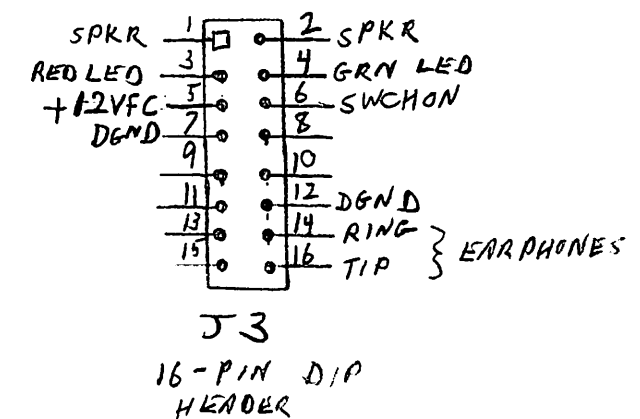 SPKR 1 2 SPKR
RED LED 3 4 GRN LED
+12VFC 5 6 SWCHON
DGND 7 8
9 10
11 12 DGND
13 14 RING
EARPHONES
15 16 TIP
J3
16-PIN DIP
HEADER